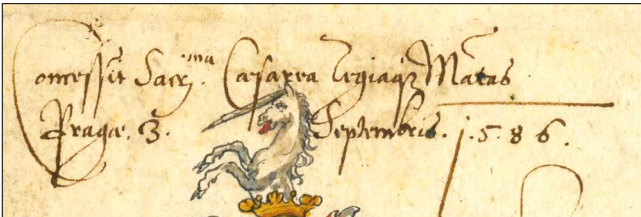 Concessit Sacr: ma Cæsarea Regiaq; Matas
Pragæ. 3. Septembris. 1.5.8.6.